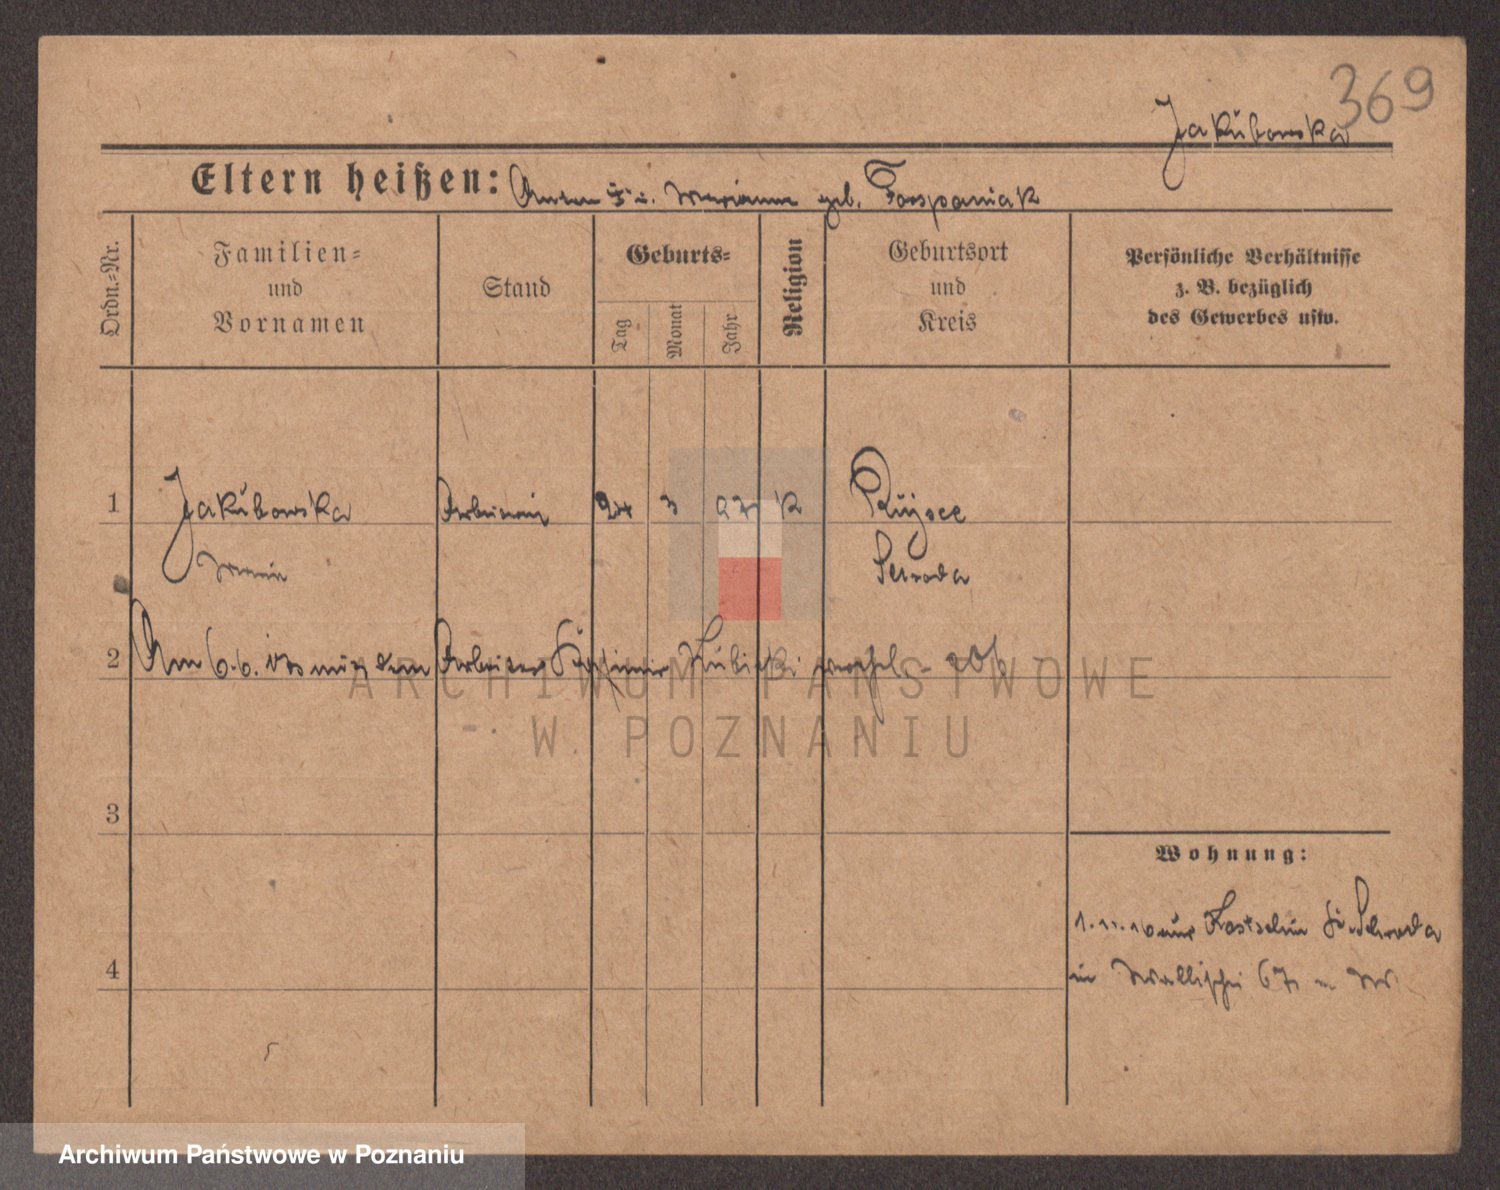 369
Jakubowska
Eltern heißen: Anton u. Marianna geb.
Ordn.-Nr.
Familien-
und
Vornamen
Stand
Geburts-
Tag
Monat
Jahr
Religion
Geburtsort
und
Kreis
Persönliche Verhältnisse
z. B. bezüglich
des Gewerbes usw.
1
Jakubowska
Arbeiterin
24
3
97
K
Schroda
2
Am 6.6. mit dem Arbeiter Kasimir
3
4
Wohnung:
1.11.16 aus Kostschin Kr. Schroda
in Wallischei 67
ARCHIWUM PAŃSTWOWE
W POZNANIU
Archiwum Państwowe w Poznaniu